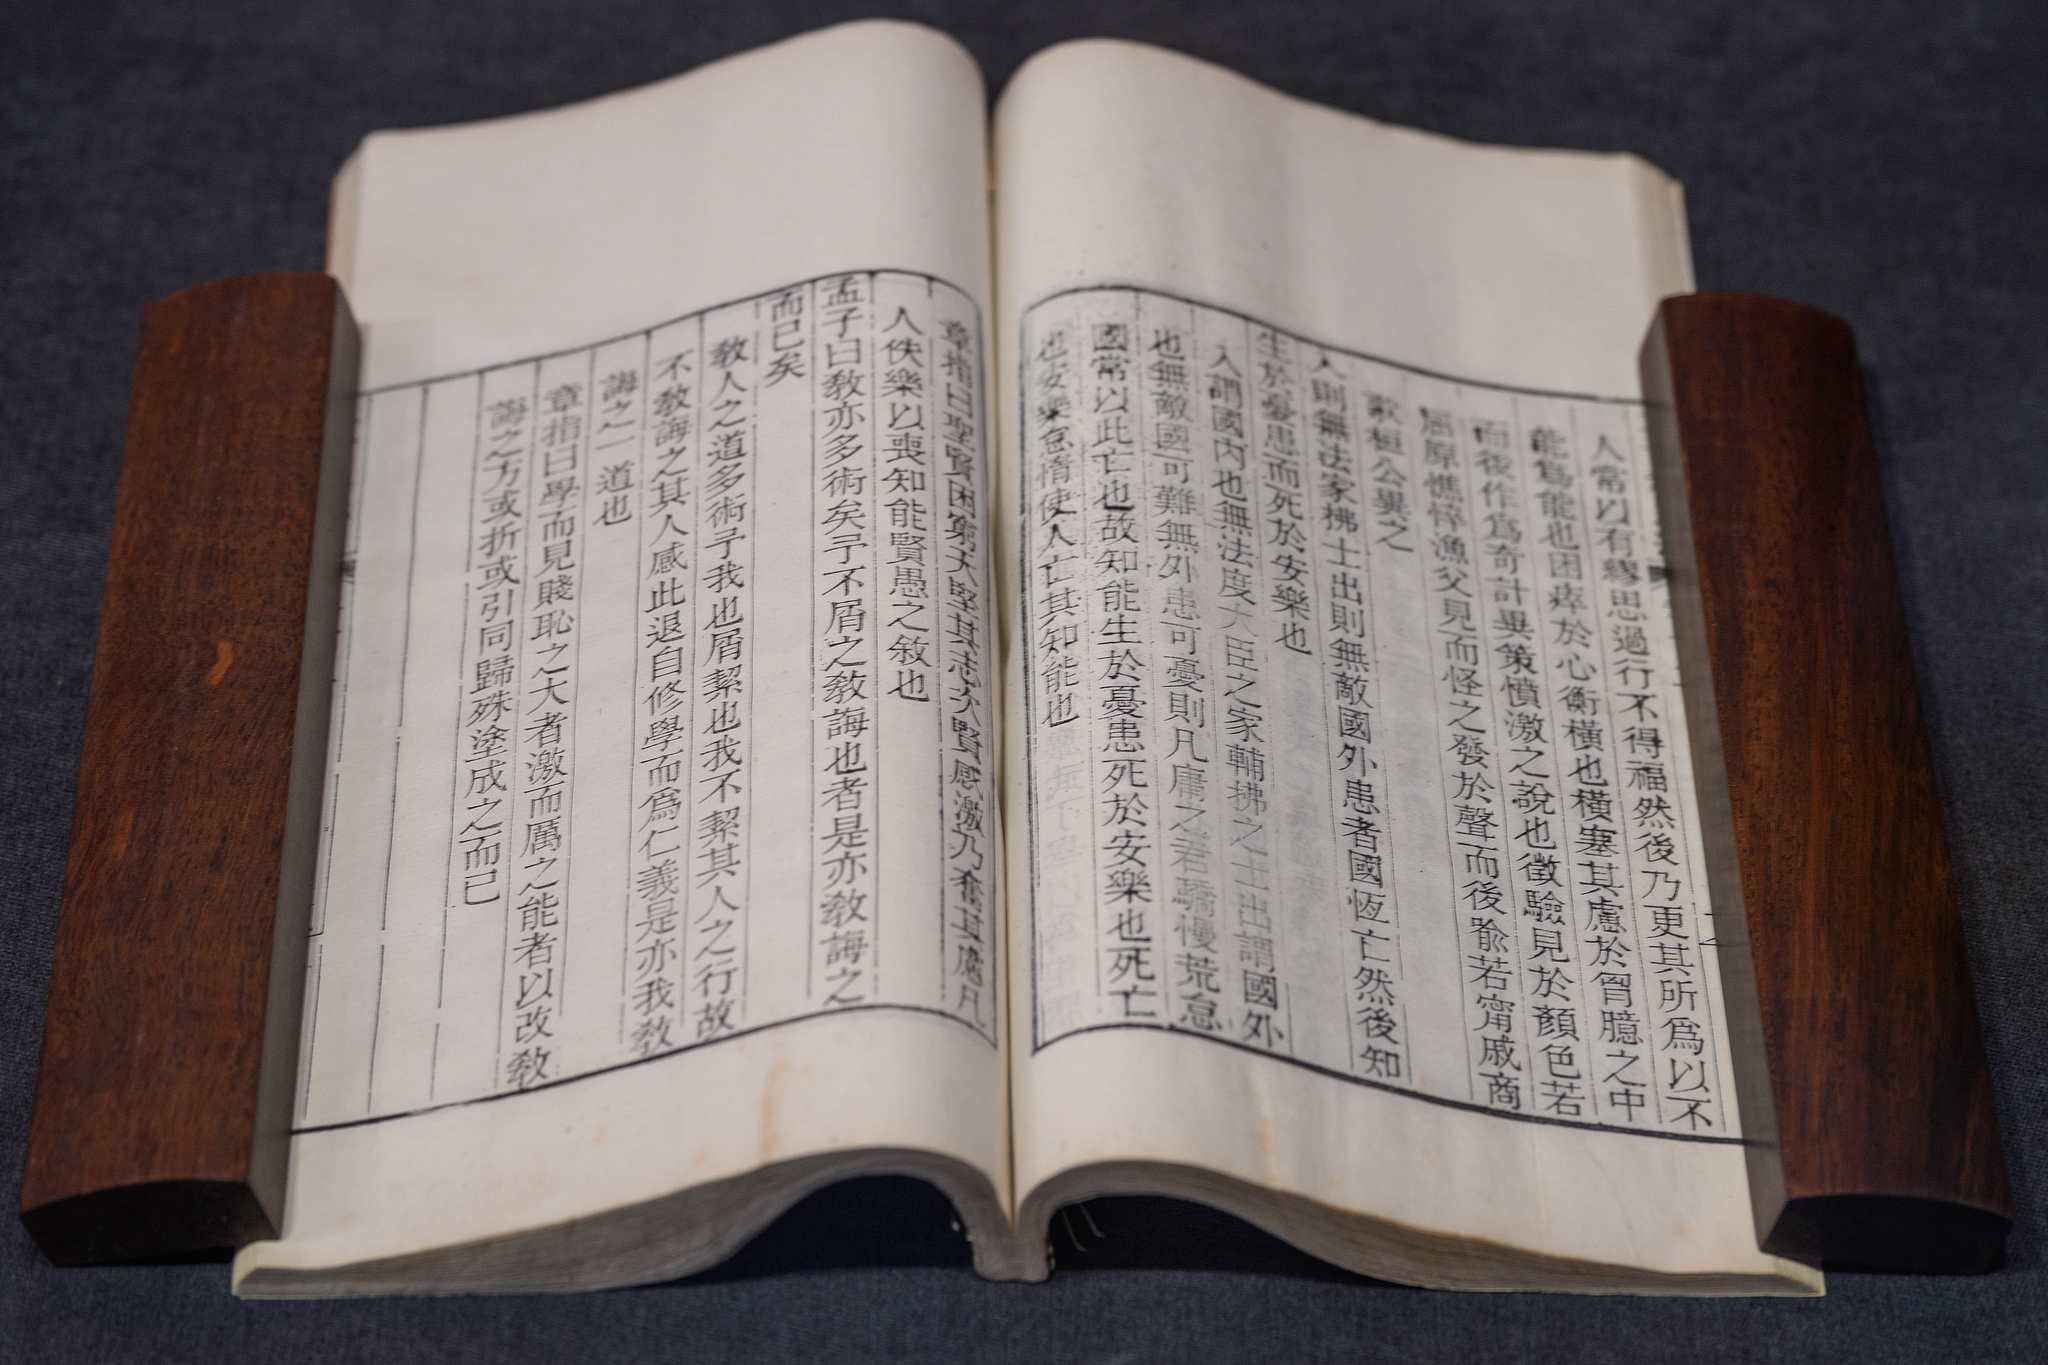 人常以有繆思過行不得福然後乃更其所爲以不
能爲能也困瘁於心衡橫也橫塞其慮於胷臆之中
而後作爲奇計異策憤激之說也徵驗見於顏色若
屈原憔悴漁父見而怪之發於聲而後喻若甯戚商
歌桓公異之
入則無法家拂士出則無敵國外患者國恆亡然後知
生於憂患而死於安樂也
入謂國內也無法度大臣之家輔拂之士出謂國外
也無敵國可難無外患可憂則凡庸之君驕慢荒怠
國常以此亡也故知能生於憂患死於安樂也死亡
也安樂怠惰使人亡其知能也
章指曰聖賢困窮天堅其志次賢感激乃奮其慮凡
人佚樂以喪知能賢愚之敘也
孟子曰敎亦多術矣予不屑之敎誨也者是亦敎誨之
而已矣
敎人之道多術予我也屑絜也我不絜其人之行故
不敎誨之其人感此退自修學而爲仁義是亦我敎
誨之一道也
章指曰學而見賤恥之大者激而厲之能者以改敎
誨之方或折或引同歸殊塗成之而已